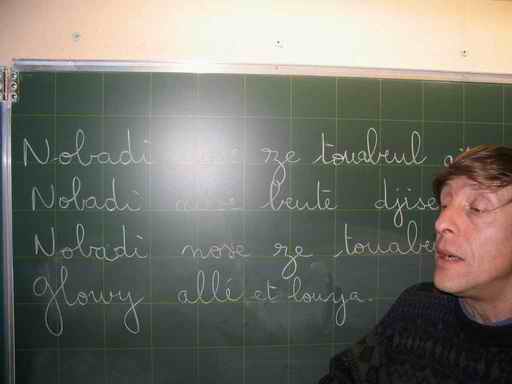 Nobadi ze touabeul
Nobadi beute djise
Nobadi nose ze touabe
Glowy allé et louya.